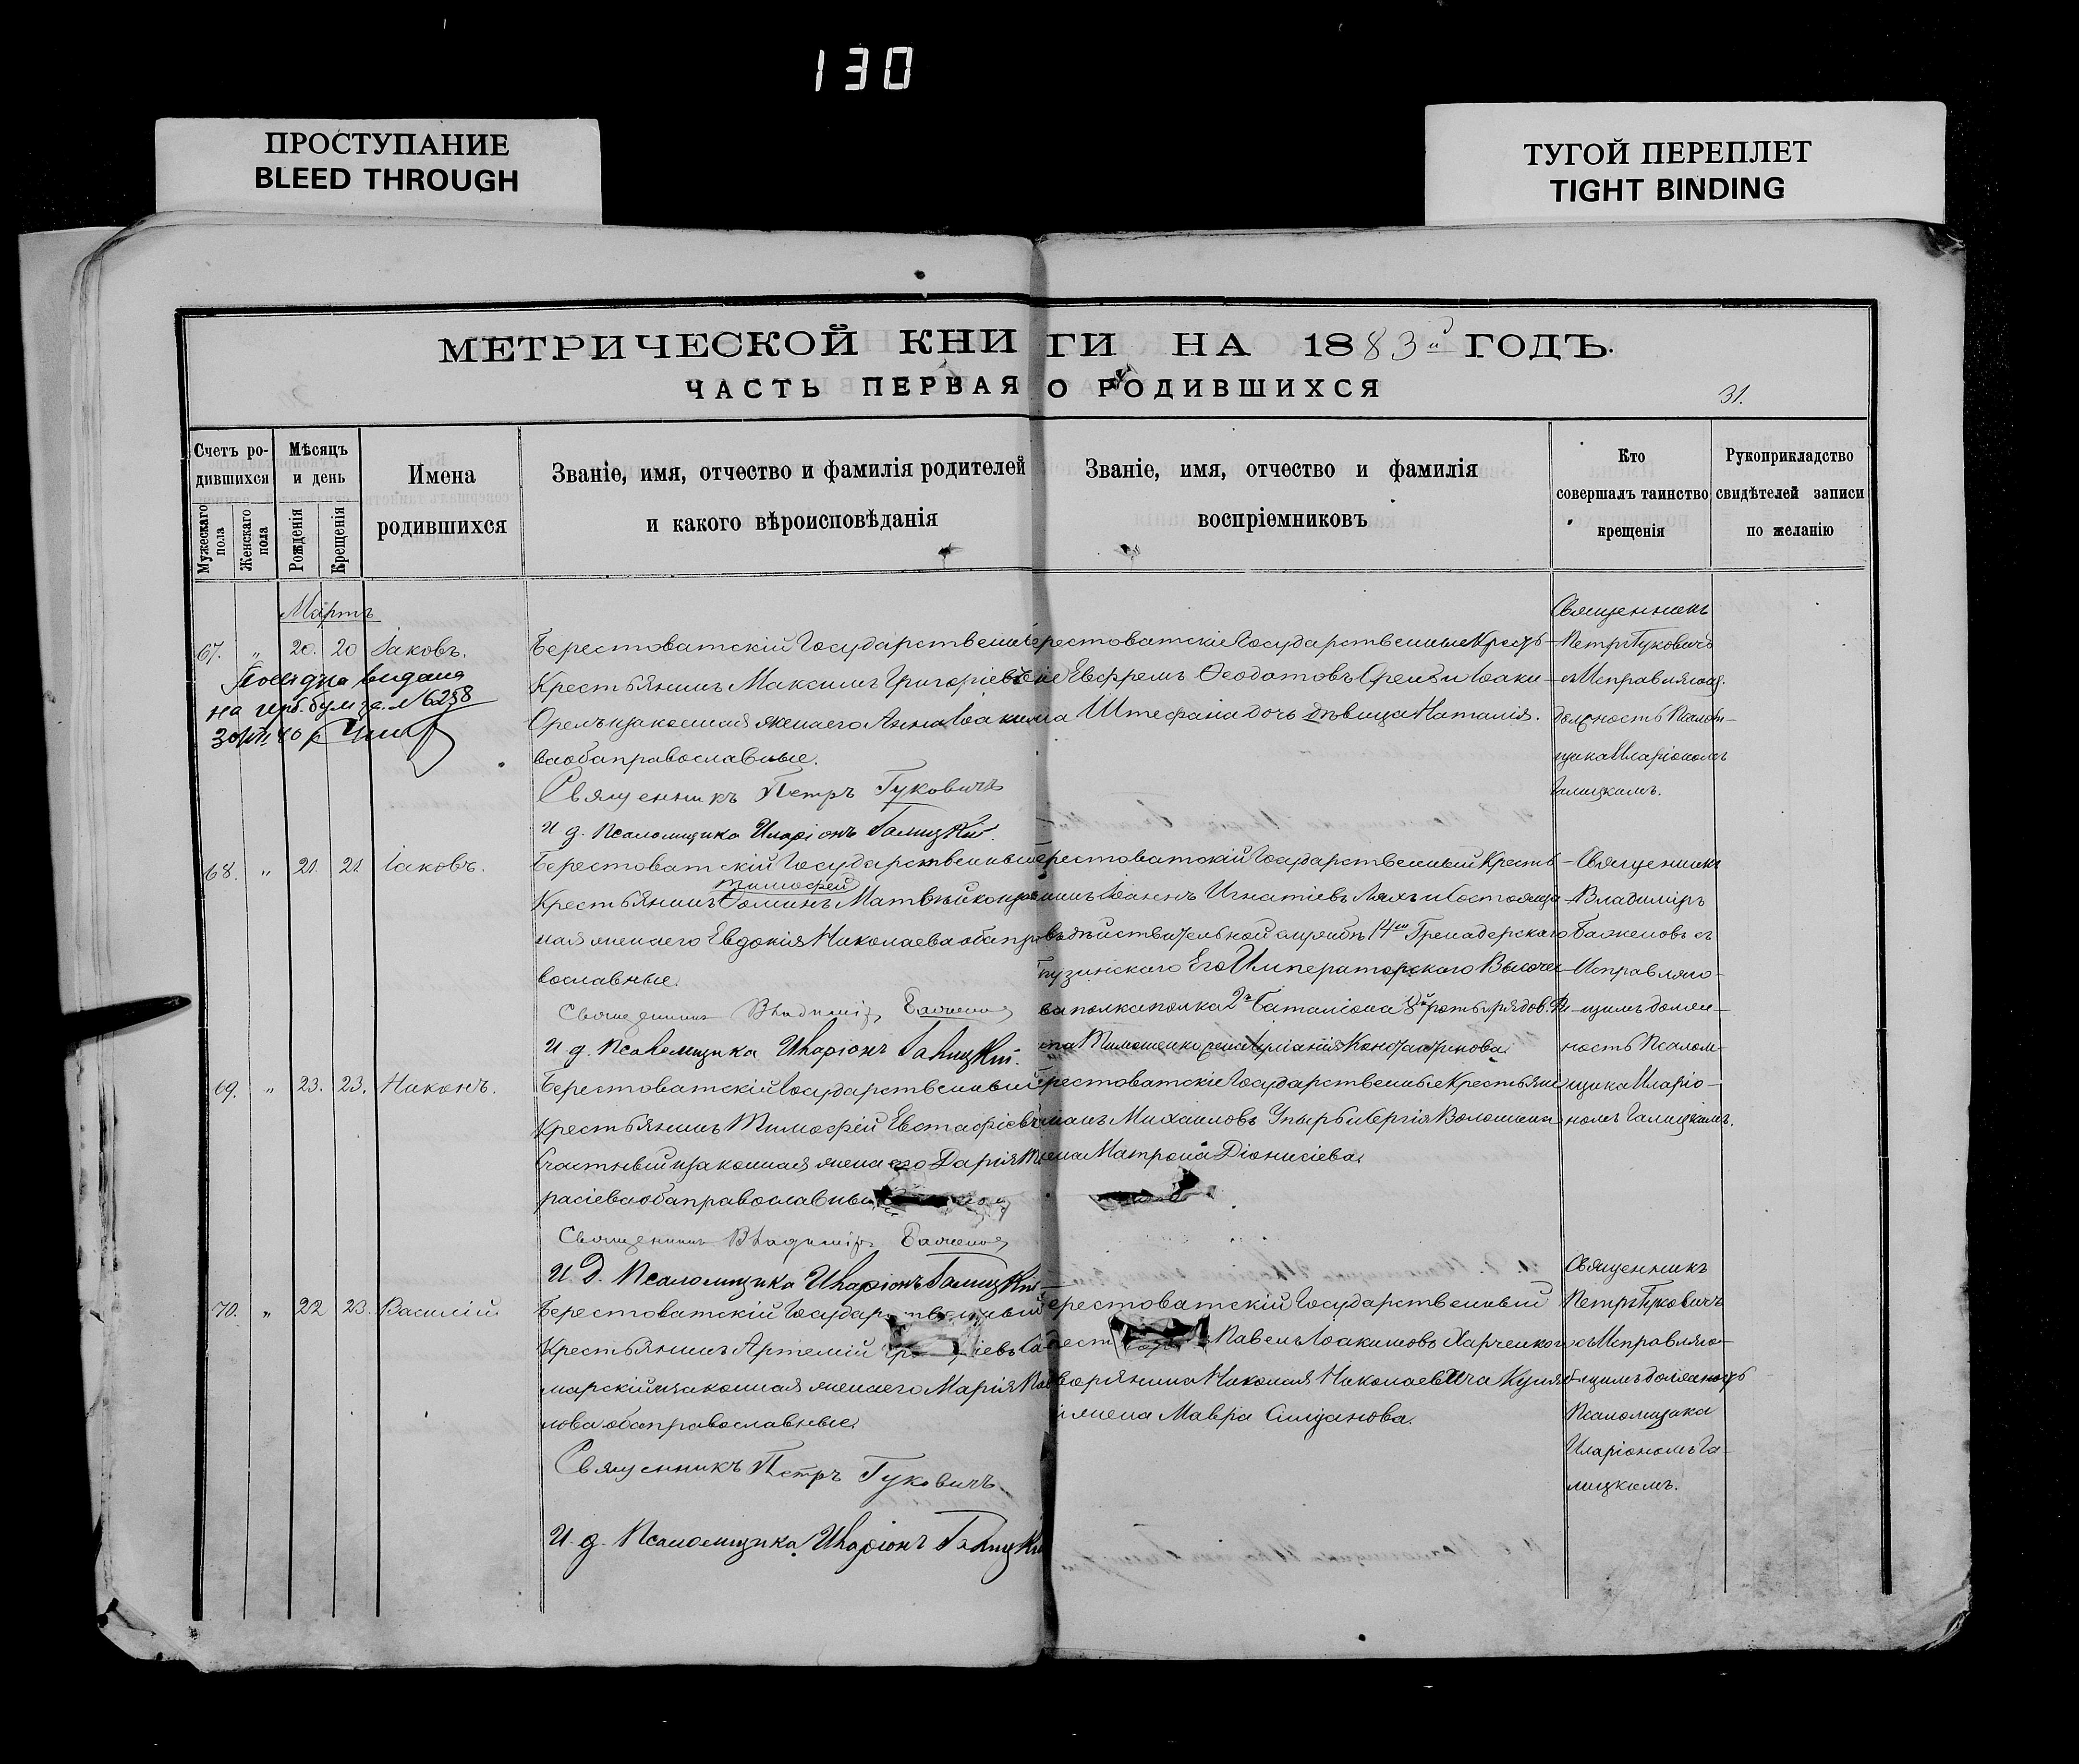 130
ПРОСТУПАНИЕ
BLEED THROUGH
ТУГОЙ ПЕРЕПЛЕТ
TIGHT BINDING
МЕТРИЧЕСКОЙ КНИГИ НА 1883й ГОДЪ.
ЧАСТЬ ПЕРВАЯ О РОДИВШИХСЯ
31.
Счетъ ро-
дившихся
Мужескаго пола
Женскаго пола
Мѣсяцъ
и день
Рожденія
Крещенія
Имена
родившихся
Званіе, имя, отчество и фамилія родителей
и какого вѣроисповѣданія
Званіе, имя, отчество и фамилія
воспріемниковъ
Кто
совершалъ таинство
крещенія
Рукоприкладство
свидѣтелей записи
по желанію
Мартъ
67. " 20. 20 Іаковъ.
видана
на герб. бум за. №6258
Берестоватскій Государственны
Крестьянинъ Максимъ Григоріевъ
Орелъ и законная жена его Анна Іоаки
ва оба православные.
Священникъ Петръ Гуковичъ
И д. Псаломщика Иларіонъ Галицкій.
Берестоватскіе Государственные Кресть-
Евфремъ Ѳеодотовъ Орелъ и Іоаки-
ма Штефана дочь дѣвица Наталія.
Священникъ
Петръ Гуковичъ
съ Исправляющ.
должность Псалом-
щика Иларіономъ
Галицкимъ.
68. " 21. 21. Іаковъ.
Берестоватскій Государственный
Тимофей
Крестьянинъ Фоминъ Матвѣйко и зако
ная жена его Евдокія Николаева оба пра
вославные.
Священникъ Владиміръ Баженовъ
И д. Псаломщика Иларіонъ Галицкій.
Берестоватскій Государственный Кресть-
нинъ Іоаннъ Игнатіевъ Ляхъ и Состояща
въ дѣйствительной службѣ 14го Гренадерскаго
Грузинскаго Его Императорскаго Высочес
ва полка полка 2го баталіона роты рядов.
Тимошенко жена Константинова.
Священникъ
Владиміръ
Баженовъ съ
Исправляю-
щимъ долж-
ность Псалом-
щика Иларіо-
номъ Галицкимъ.
69. " 23. 23. Никонъ.
Берестоватскій Государственный
Крестьянинъ Тимофей Евстафіевъ
Счастный и законная жена его Дарія
расіева оба православные
Священникъ Владиміръ Баженовъ
И Д. Псаломщика Иларіонъ Галицкій
Берестоватскіе Государственные Крестьяни
Михаиловъ Упырь и Сергія Волошина
жена Матрона Діонисіева.
70. " 22 23. Василій.
Берестоватскій Государственный
Крестьянинъ Артемій
марскій и законная жена его Марія Пав
лова оба православные.
Священникъ Петръ Гуковичъ
И. д. Псаломщика Иларіонъ Галицкій
Берестоватскій Государственный
Крест Павелъ Іоакимовъ Харченко и
дворянина Николая Николаевича
жена Мавра
Священникъ
Петръ Гуковичъ
съ Исправляю-
щимъ должность
Псаломщика
Иларіономъ Га-
лицкимъ.